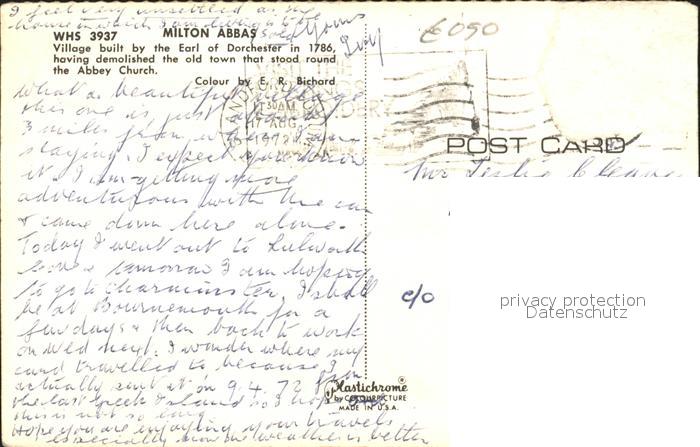 I feel very unsettled as the
house in which I am living is to be
sold
Yours
Ivy
€ 050
WHS 3937 MILTON ABBAS
Village built by the Earl of Dorchester in 1786,
having demolished the old town that stood round
the Abbey Church.
Colour by E. R. Bichard
30 AM
17 AUG
1972
POST CARD
Mr Leslie
c/o
privacy protection
Datenschutz
What a beautiful village
this one is just about
3 miles from where I am
staying. I expect you know
it. I am getting more
adventurous with the car
& came down here alone.
Today I went out to Lulworth
Cove & tomorrow I am hoping
to go to Charminster. I shall
be at Bournemouth for a
few days & then back to work
on Wed next. I wonder where my
card travelled to because I
actually sent it on 9.4.72 from
the last Greek Island so I hope
this is not so long
Hope you are enjoying your travels
especially now the weather is better
Plastichrome
by COLOURPICTURE
MADE IN U.S.A.